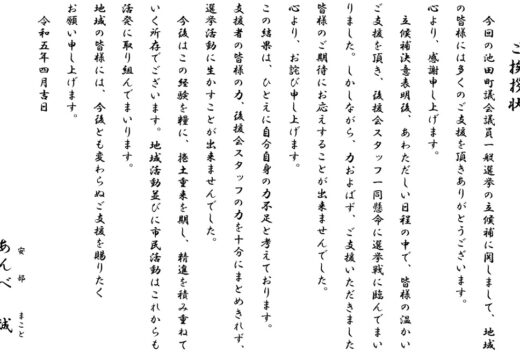 ご挨拶状
今回の池田町議会議員一般選挙の立候補に関しまして、地域
の皆様には多くのご支援を頂きありがとうございます。
心より、感謝申し上げます。
立候補決意表明後、あわただしい日程の中で、皆様の温かい
ご支援を頂き、後援会スタッフ一同懸命に選挙戦に臨んでまい
りました。しかしながら、力およばず、ご支援いただきました
皆様のご期待にお応えすることが出来ませんでした。
心より、お詫び申し上げます。
この結果は、ひとえに自分自身の力不足と考えております。
支援者の皆様の力、後援会スタッフの力を十分にまとめきれず、
選挙活動に生かすことが出来ませんでした。
今後はこの経験を糧に、捲土重来を期し、精進を積み重ねて
いく所存でございます。地域活動並びに市民活動はこれからも
活発に取り組んでまいります。
地域の皆様には、今後とも変わらぬご支援を賜りたく
お願い申し上げます。
令和五年四月吉日
安部 まこと
あんべ 誠